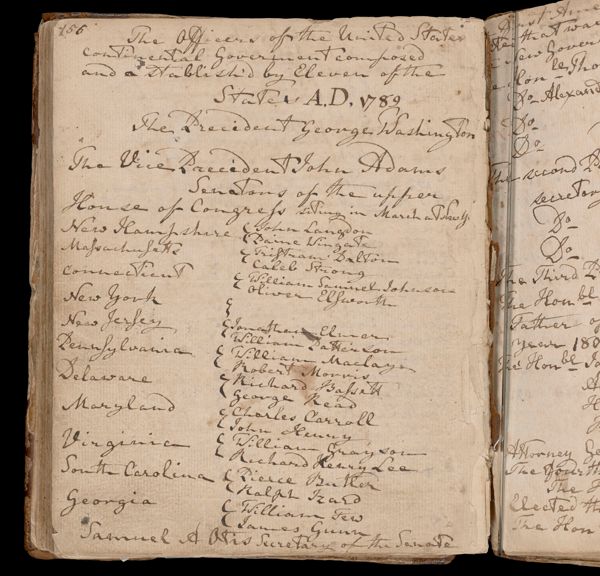 156
The Officers of the United States
continental Goverment composed
and established by Eleven of the
States A.D. 1789
The Precident George Washington
The Vice Precident John Adams
Senators of the upper
House of Congress siting in March at New Y
New Hampshire John Langdon
Paine Wingate
Massachusetts Tristram Dalton
Caleb Strong
connecticut William Samuel Johnson
Oliver Elsworth
New York
New Jersey Jonathan Elmer
William Patterson
Pennsylvania William Maclay
Robert Morris
Delaware Richard Bassett
George Read
Maryland Charles Carroll
John Henry
Virginia William Grayson
Richard Henry Lee
South Carolina Pierce Butler
Ralph Izard
Georgia William Few
James Gunn
Samuel A Otis Secretary of the Senate
that was
New Gover
Hon
Do Alexand
Do
Do
The second
secretary
Do
Do
The Third
The Honbl
Father of
year 180
The Honbl
Attorney Ge
The Fourth
The
Elected th
The Hon